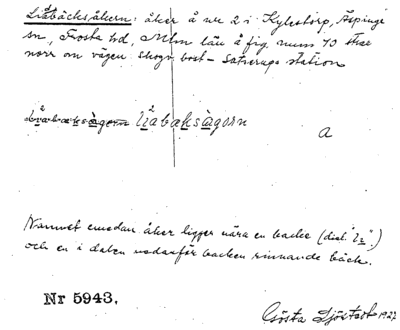 Liåbäcksåkern: åker å nr 2 i Kylestorp, Äspinge
sn, Frosta hd, Mlm län å fig. num 70 strax
norr om vägen Skogsbost - Satserup station
liåbaksågorn
a
Namnet emedan åker ligger nära en backe (dial. "li".)
och en i dalen nedanför backen rinnande bäck.
Nr 5943.
Gösta Sjöstedt 1927